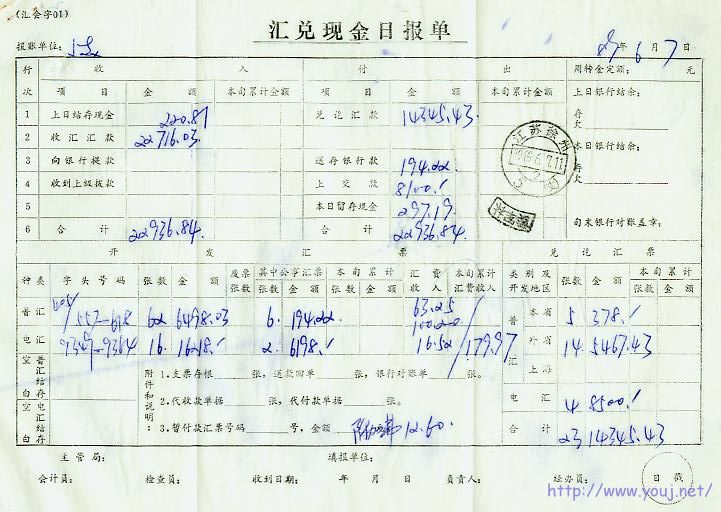 (汇会字01)
汇兑现金日报单
报账单位:
89年6月7日
行次 收入 付出 周转金定额: 元
项目 金额 本旬累计金额 项目 金额 本旬累计金额 上日银行结余:
1 上日结存现金 220.81 兑讫汇款 14345.43 存欠
2 收汇汇款 22716.03
本日银行结余:
3 向银行提款 送存银行款 194.22
存欠
4 收到上级拨款 上交款 8100.1
5 本日留存现金 297.19
6 合计 22936.84 合计 22936.84
旬末银行对账盖章:
江苏徐州
1989.6.7.11
开发汇票 兑讫汇票
种类 字头号码 张数 金额 废票张数 其中公事汇票 张数 金额 本旬累计 张数 金额 汇费收入 本旬累计汇费收入 类别及开发地区 张数 金额 本旬累计 张数 金额
普汇 557-618 62 6498.03 6. 194.22 63.25 普汇 本省 5 378.1
100.20
电汇 9349-9364 16. 16218.1 2. 6198.1 16.52 179.97 外省 14 5467.43
空白 普汇结存 附件和说明: 1.支票存根 张,送款回单 张,银行对账单 张。 上海
空白 电汇结存 2.代收款单据 张,代付款单据 张。 电汇 4 8500.1
3.暂付款汇票号码 号,金额 12.60. 合计 23 14345.43
主管局: 填报单位:
会计员: 检查员: 收到日期: 年 月 日 负责人: 经办员: 日戳
http://www.youj.net/